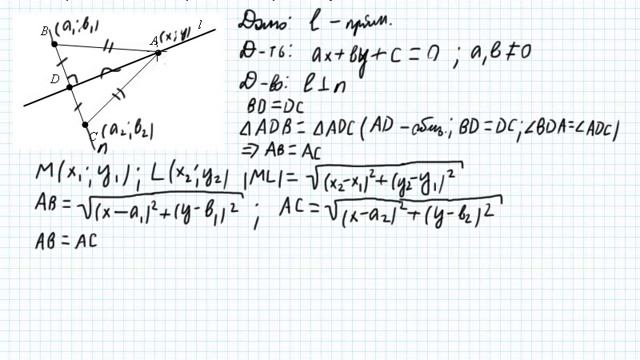 B (a₁; b₁)
A(x; y) l
D
C (a₂; b₂)
n
Дано: l – прям.
Д-ть: ax + by + c = 0 ; a, b ≠ 0
Д-во: l ⊥ n
BD = DC
△ADB = △ADC (AD – общ.; BD = DC; ∠BDA = ∠ADC)
⇒ AB = AC
M(x₁; y₁) ; L(x₂; y₂) |ML| = √((x₂ – x₁)² + (y₂ – y₁)²)
AB = √((x – a₁)² + (y – b₁)²) ; AC = √((x – a₂)² + (y – b₂)²)
AB = AC